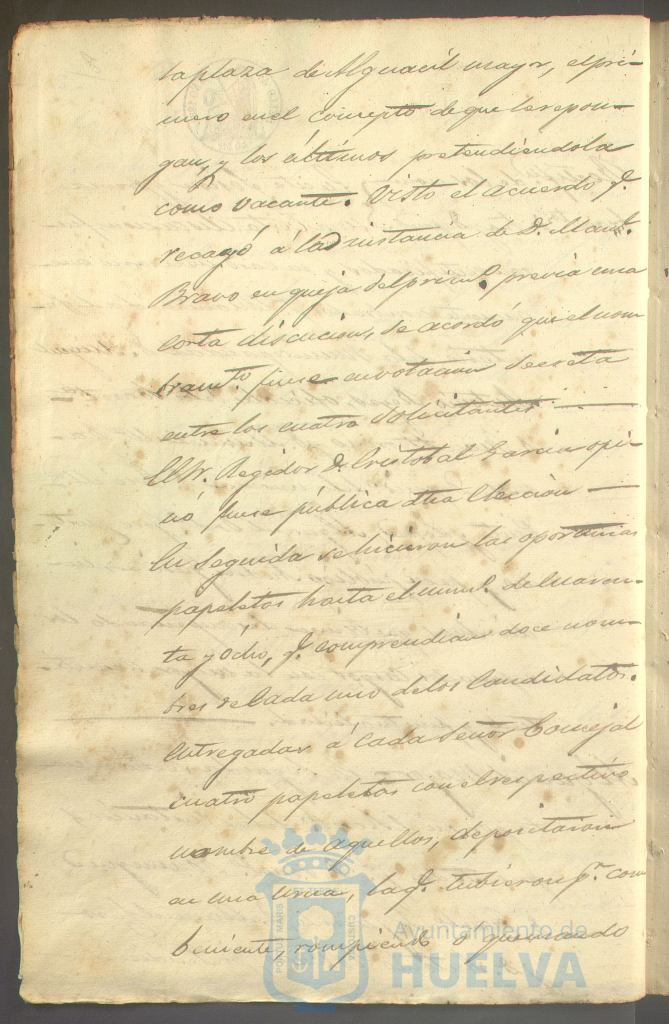 la plaza de Alguacil mayr, el pri-
mero en el concepto de que le repon-
gan, y los últimos pretendiendola
como vacante. Visto el acuerdo q.e
recayó á la instancia de D. Man.l
Bravo en queja del prim.o, previa una
corta discucion, se acordó que el nom
bram.to fuese en votacion secreta
entre los cuatro solicitantes
El Sr. Regidor D. Cristobal Garcia opi-
nó fuese pública dha eleccion
En seguida se hicieron las oportunas
papeletas hasta el num.o de cuaren-
ta y ócho, q.e comprendian doce nom-
bres de cada uno de los Candidatos.
Entregadas á cada Señor Concejal
cuatro papeletas con el respectivo
nombre de aquellos, depositaron
en una urna, la q.e tubieron p.r con
beniente, rompiendo o quemando
Ayuntamiento de
HUELVA
PORTUS MARIS